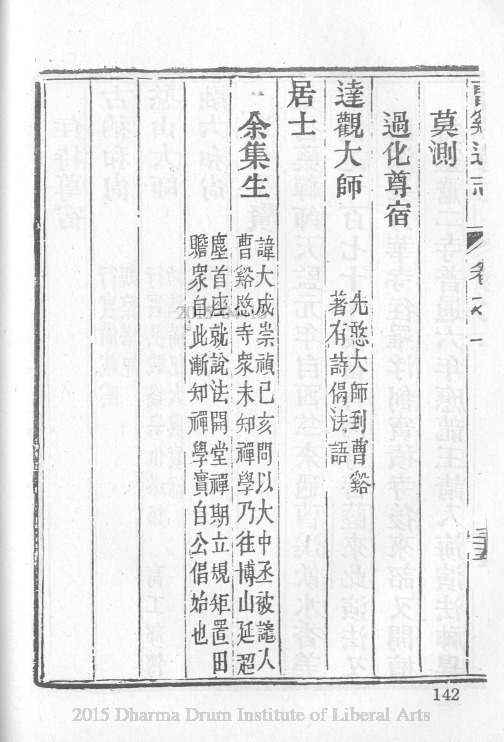 曹谿通志
卷之一
莫測
過化尊宿
達觀大師
先憨大師到曹谿
著有詩偈法語
居士
余集生
諱大成崇禎己亥間以大中丞被譴人
曹谿愍寺衆未知禪學乃往博山延迢
塵首座就說法開堂禪期立規矩置田
贍衆自此漸知禪學實自公倡始也
142
2015 Dharma Drum Institute of Liberal Arts